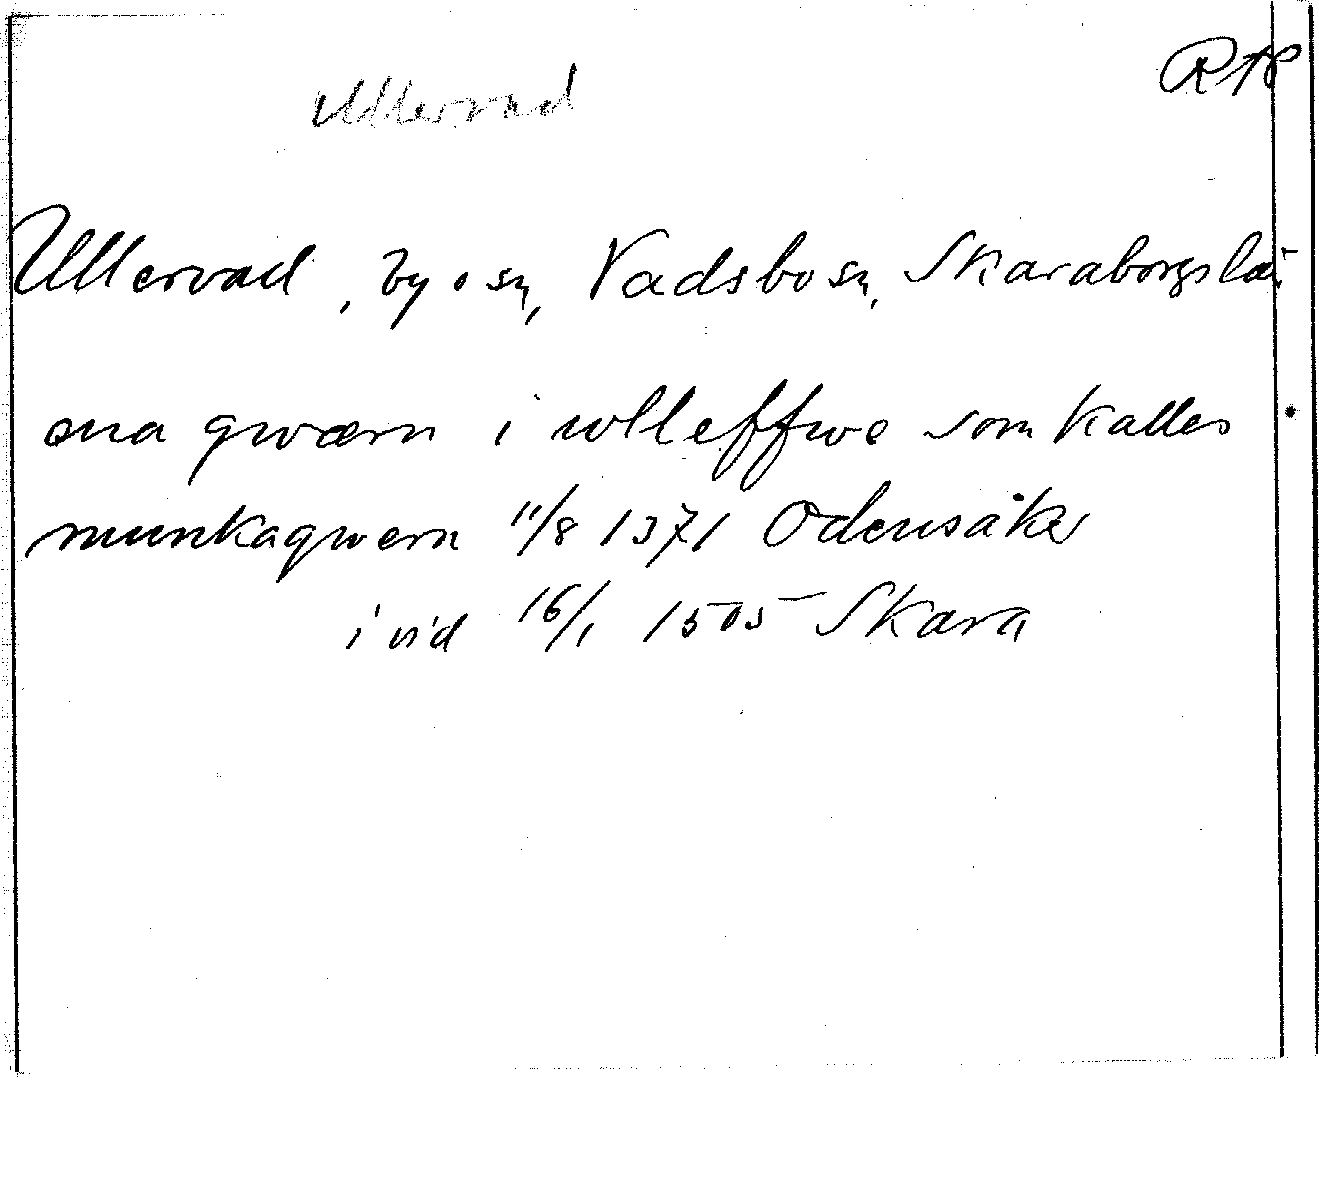 RAP
Ullervad
Ullervad, by o sn, Vadsbo sn, Skaraborgs län
ena qwærn i wlleffwe som kalles
munkaqwern 11/8 1371 Odensåker
i vid 16/1 1505 Skara